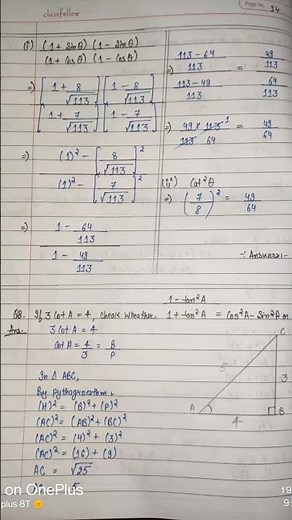 classfellow
Page No. 14
(i) (1 + Sinθ) (1 - Sinθ)
(1 + Cosθ) (1 - Cosθ)
⇒ [1 + 8/√113] [1 - 8/√113]
[1 + 7/√113] [1 - 7/√113]
⇒ (1)² - [8/√113]²
(1)² - [7/√113]²
⇒ 1 - 64/113
1 - 49/113
⇒ 113 - 64/113 = 49/113
113 - 49/113 = 64/113
⇒ 49/113 × 113/64 1 = 49/64
(ii) Cot²θ
⇒ (7/8)² = 49/64
Answer :-
Q8. If 3 Cot A = 4, check whether 1 - tan²A / 1 + tan²A = Cos²A - Sin²A or
Ans. 3 Cot A = 4
Cot A = 4/3 = B/P
In Δ ABC,
By Pythagorathm :
(H)² = (B)² + (P)²
(AC)² = (AB)² + (BC)²
(AC)² = (4)² + (3)²
(AC)² = (16) + (9)
AC = √25
5
C
5
3
A
4
B
on OnePlus
plus 8T